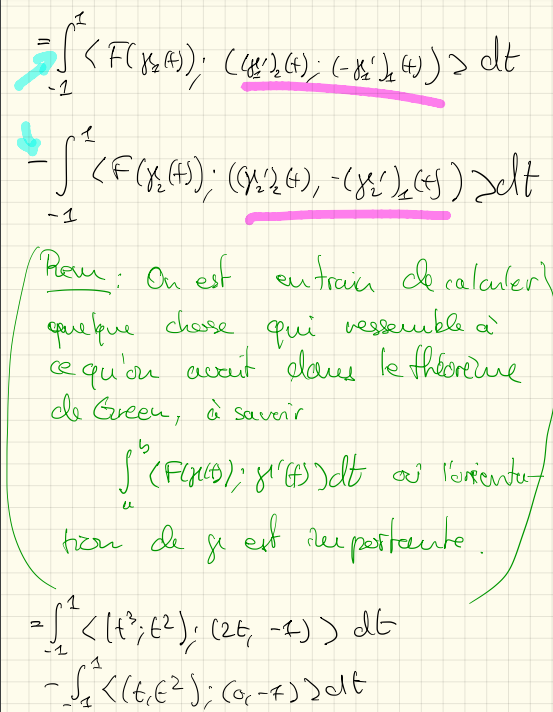 = ∫_{-1}^{1} < F(γ_2(t)); ((γ_1')_2(t); (-γ_1')_1(t)) > dt
- ∫_{-1}^{1} < F(γ_2(t)); ((γ_2')_2(t), -(γ_2')_1(t)) > dt
Rem : On est entrain de calculer
quelque chose qui ressemble à
ce qu'on avait dans le théorème
de Green, à savoir
∫_a^b <F(γ(t)); γ'(t)> dt où l'orienta-
tion de γ est importante.
= ∫_{-1}^{1} < (t³; t²); (2t, -1) > dt
- ∫_{-1}^{1} < (t, t²); (0, -1) > dt